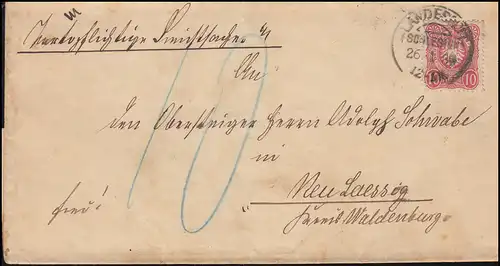 Portopflichtige Dienstsache
LANDESHUT
26
10
An
den Obersteiger Herrn Adolph Schwabe
in
Neu Laessig
frei!
Kreis Waldenburg
10